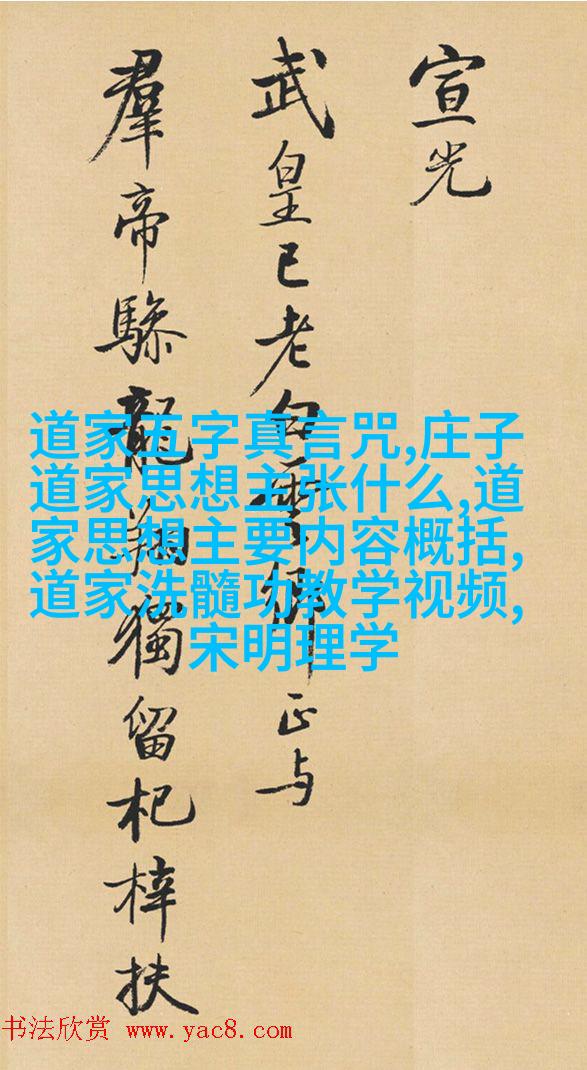 宣光
武皇已老白雲鄉正与
羣帝驂龍翔獨留杞梓扶
道家五字真言咒,庄子
道家思想主张什么,道
家思想主要内容概括,
道家洗髓功教学视频,
宋明理学
书法欣赏 www.yac8.com